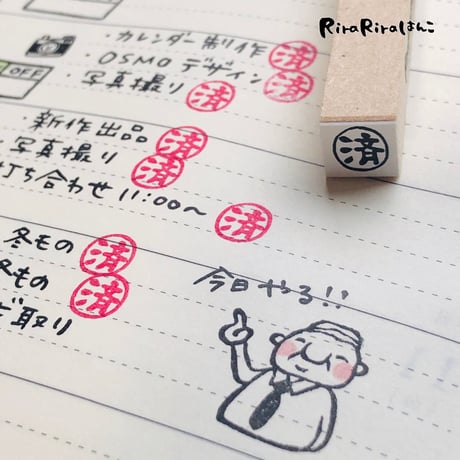 RiraRiraはんこ
・カレンダー制作 済
・OSMOデザイン 済
OFF
・写真撮り 済
済
・新作出品 済
・写真撮り 済
打ち合わせ 11:00〜 済
冬もの 済
冬もの 済
取り
今日やる!!